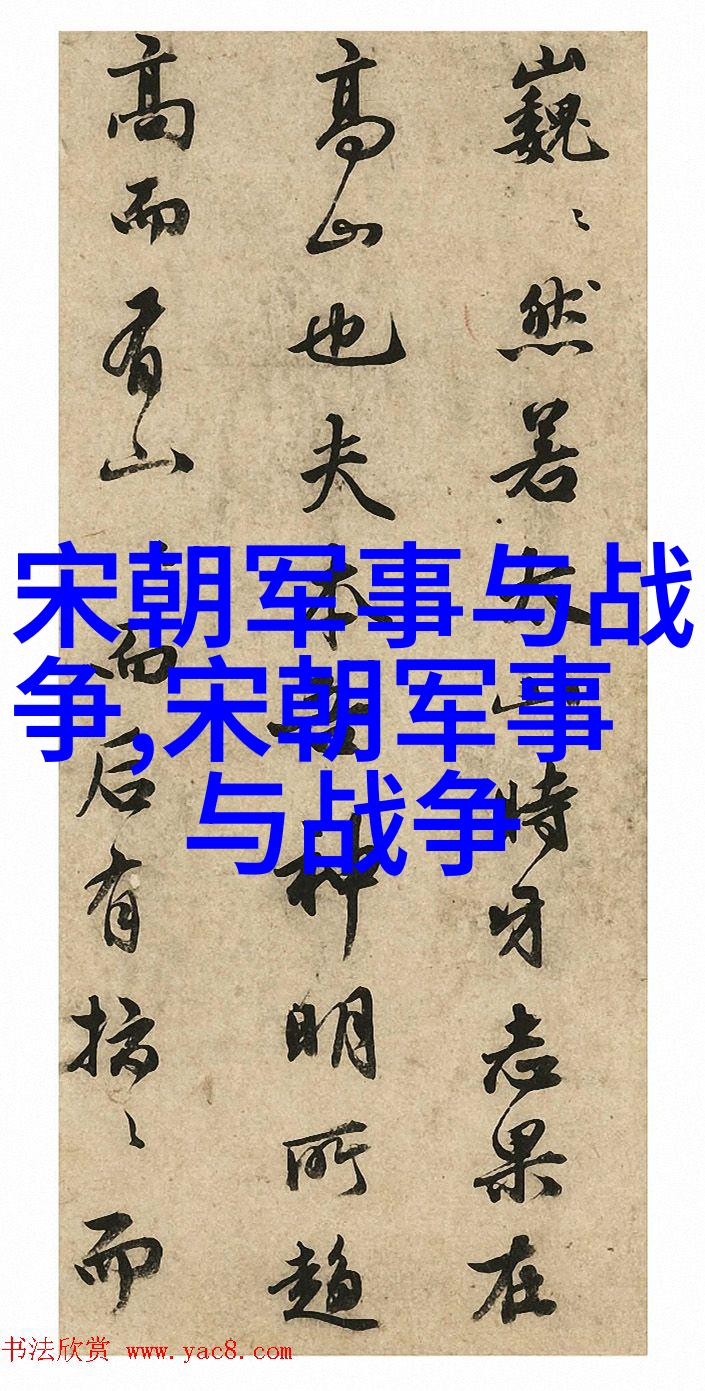 巍〻然若太山時牙志果在
高山也夫本神明所趨
高而有山而后有〻而
宋朝军事与战
争,宋朝军事
与战争
书法欣赏 www.yac8.com